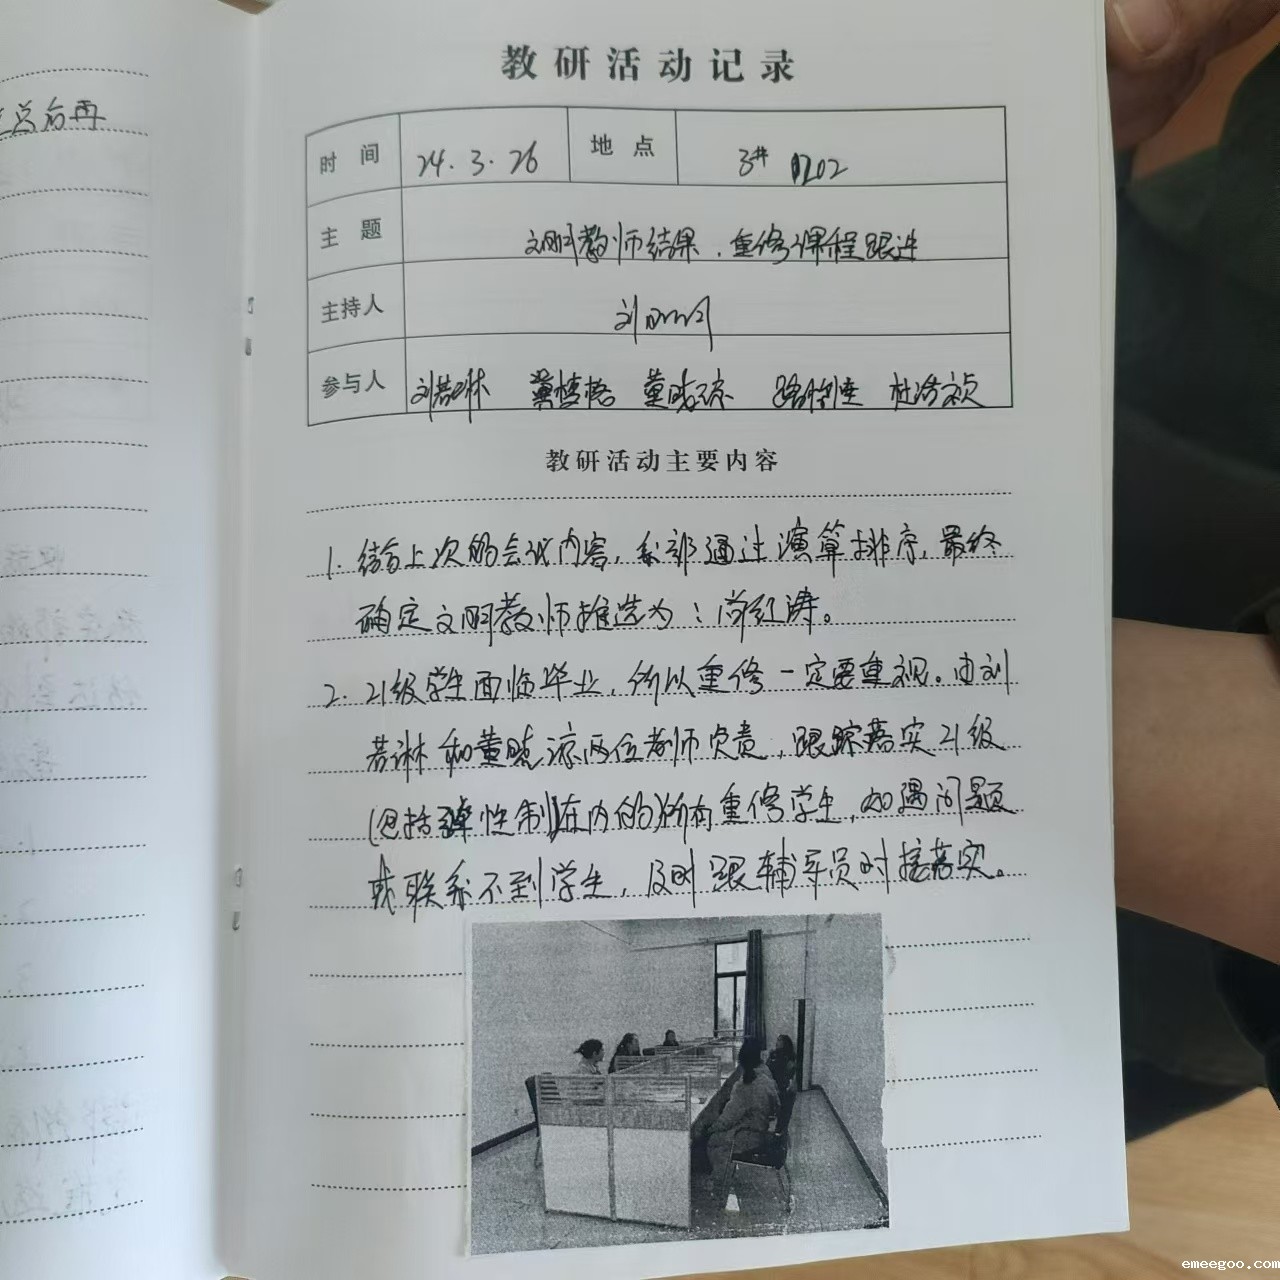 总后再
教研活动记录
时间 24.3.26 地点 3# 0202
主题 文明教师结果、重修课程跟进
主持人 刘
参与人 刘若琳 董晓凉
教研活动主要内容
1. 结合上次的会议内容,系部通过演算排序,最终
确定文明教师推选为:尚红涛。
2. 21级学生面临毕业,所以重修一定要重视。由刘
若琳和董晓凉两位教师负责,跟踪落实21级
(包括弹性制在内的)所有重修学生,如遇问题
或联系不到学生,及时跟辅导员对接落实。
emeegoo.com